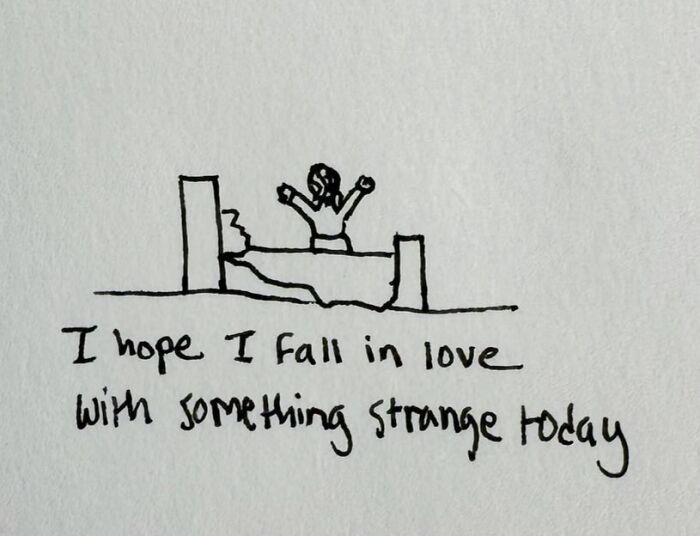 I hope I fall in love
with something strange today